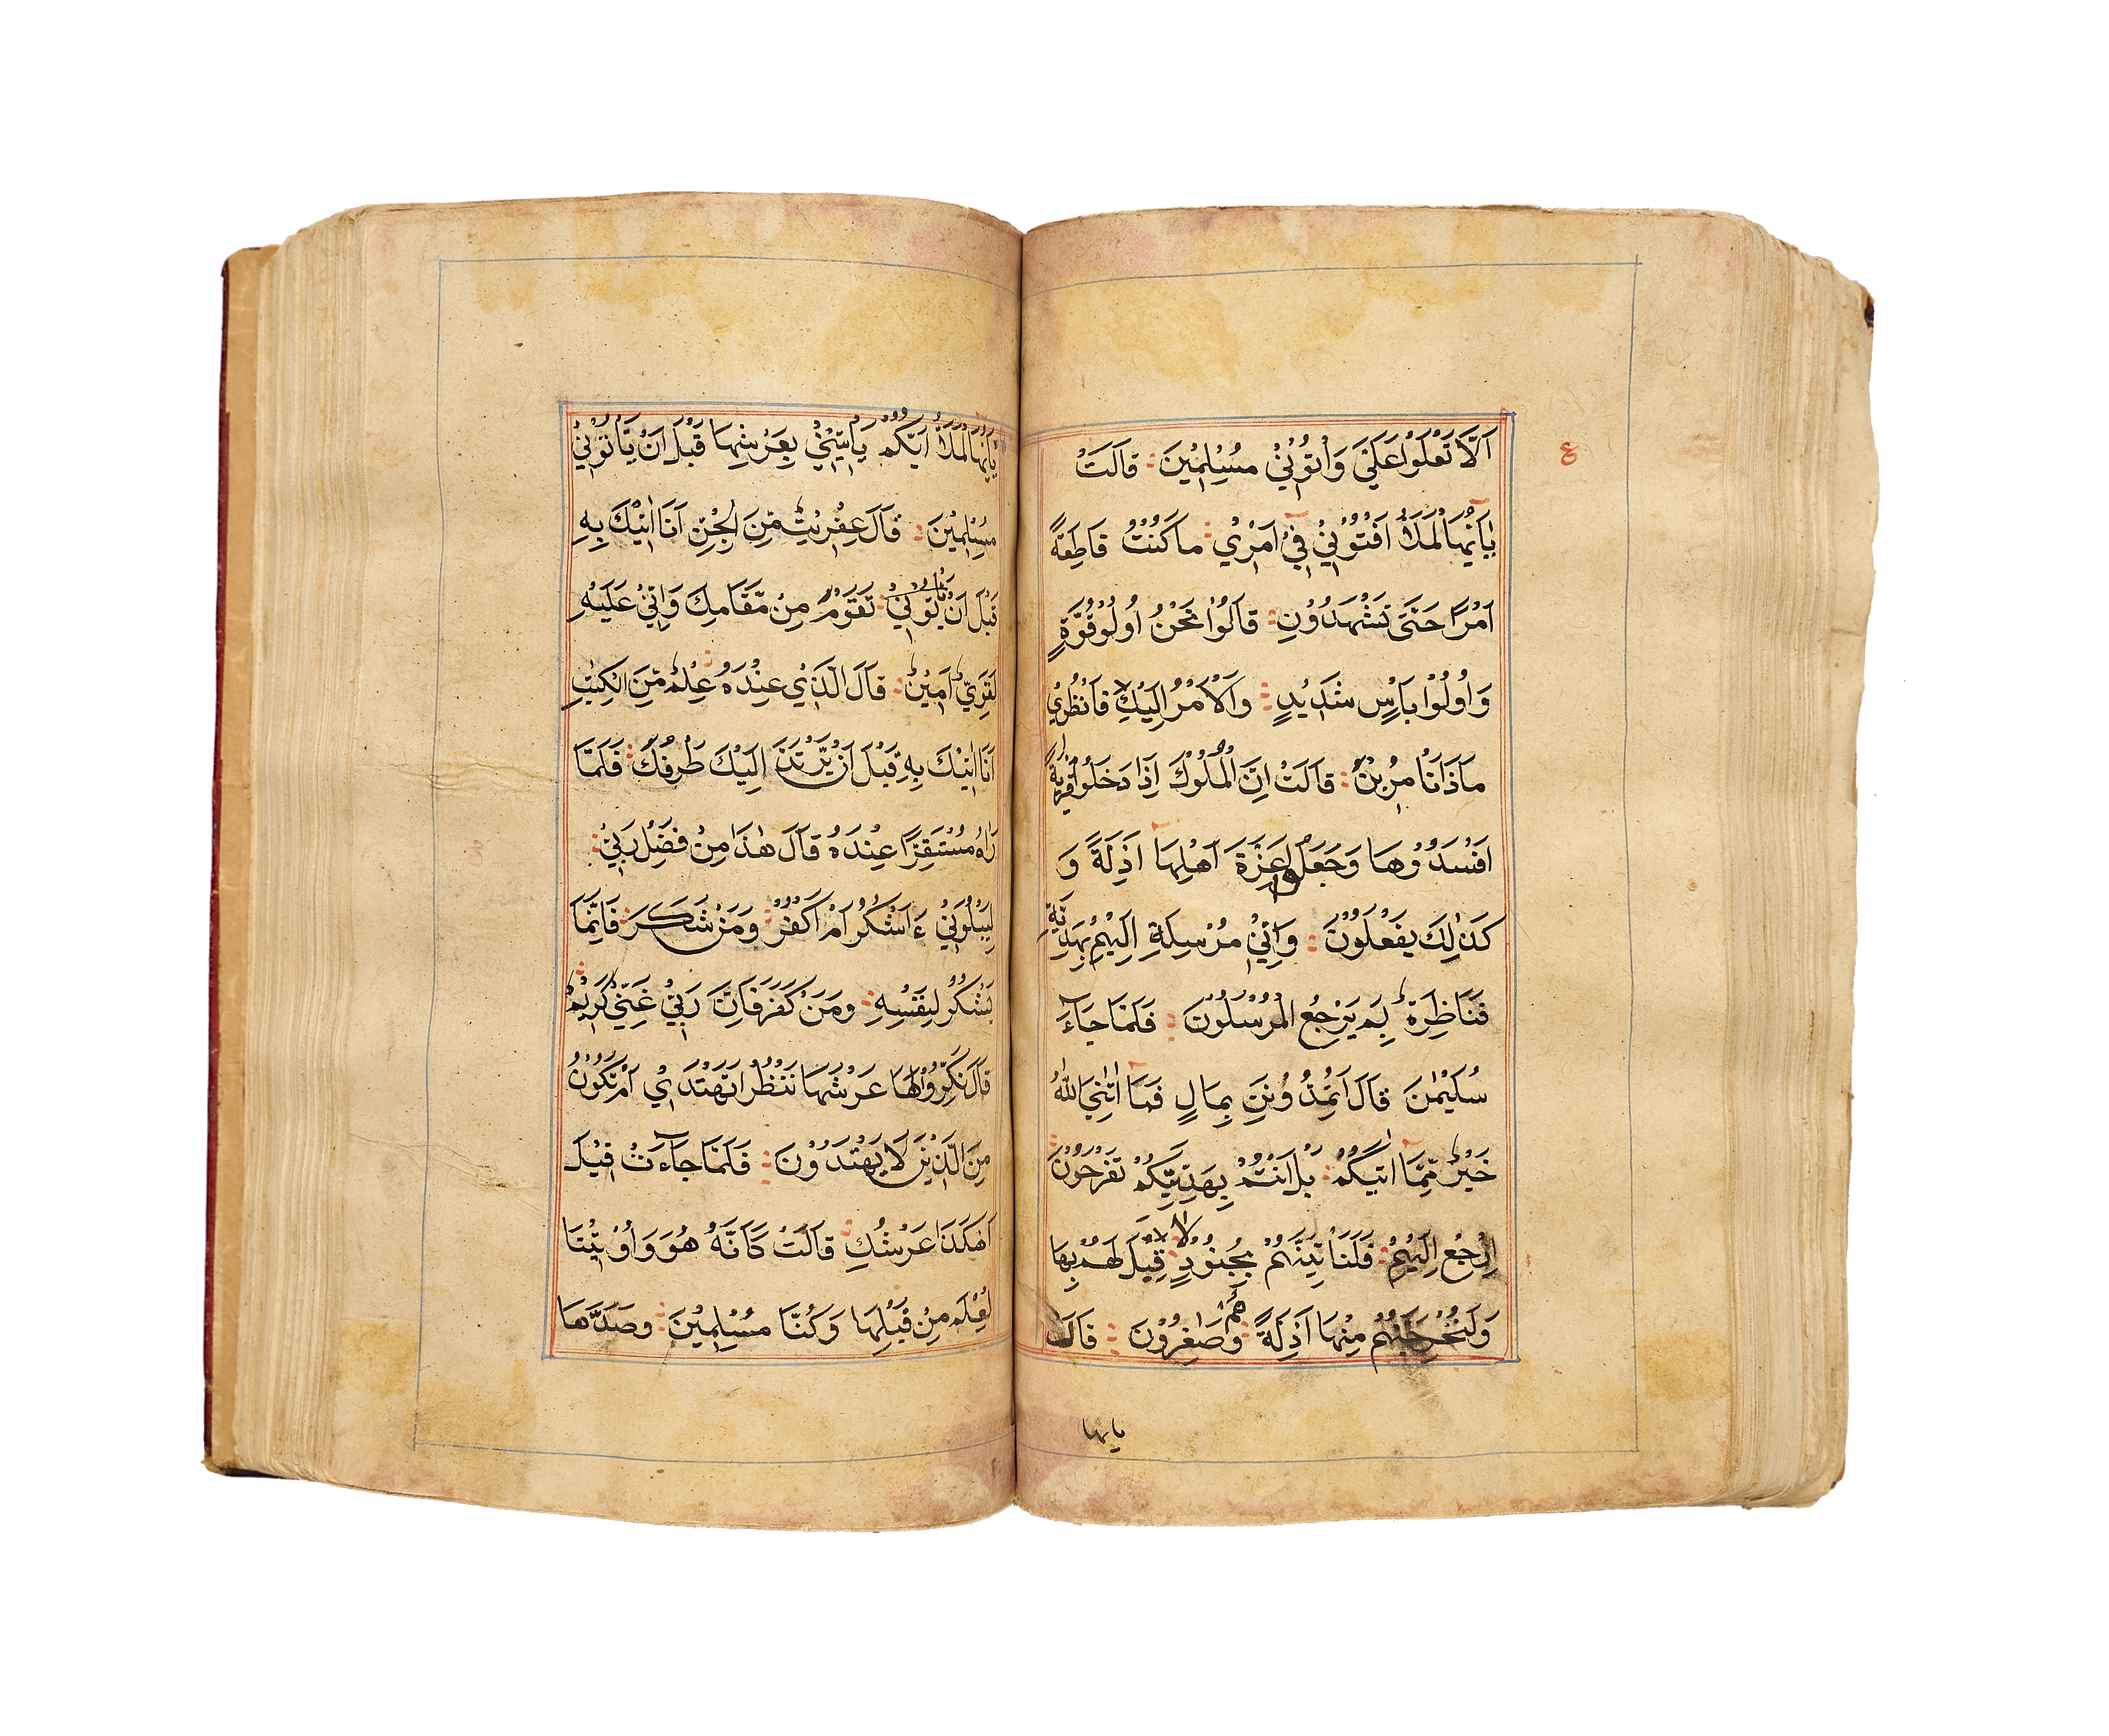 اَلَّا تَعْلُوْا عَلَيَّ وَاْتُوْنِيْ مُسْلِمِيْنَ قَالَتْ
ع
يٰٓاَيُّهَا الْمَلَؤُا اَفْتُوْنِيْ فِيْٓ اَمْرِيْ مَا كُنْتُ قَاطِعَةً
اَمْرًا حَتّٰى تَشْهَدُوْنِ قَالُوْا نَحْنُ اُولُوْ قُوَّةٍ
وَاُولُوْا بَاْسٍ شَدِيْدٍ وَالْاَمْرُ اِلَيْكِ فَانْظُرِيْ
مَاذَا تَاْمُرِيْنَ قَالَتْ اِنَّ الْمُلُوْكَ اِذَا دَخَلُوْا قَرْيَةً
اَفْسَدُوْهَا وَجَعَلُوْا اَعِزَّةَ اَهْلِهَآ اَذِلَّةً وَ
كَذٰلِكَ يَفْعَلُوْنَ وَاِنِّيْ مُرْسِلَةٌ اِلَيْهِمْ بِهَدِيَّةٍ
فَنَاظِرَةٌ بِمَ يَرْجِعُ الْمُرْسَلُوْنَ فَلَمَّا جَآءَ
سُلَيْمٰنَ قَالَ اَتُمِدُّوْنَنِ بِمَالٍ فَمَآ اٰتٰنِيَ اللّٰهُ
خَيْرٌ مِّمَّآ اٰتٰىكُمْ بَلْ اَنْتُمْ بِهَدِيَّتِكُمْ تَفْرَحُوْنَ
اِرْجِعْ اِلَيْهِمْ فَلَنَاْتِيَنَّهُمْ بِجُنُوْدٍ لَا قِبَلَ لَهُمْ بِهَا
وَلَنُخْرِجَنَّهُمْ مِنْهَا اَذِلَّةً وَهُمْ صَاغِرُوْنَ قَالَ
يايها
يٰٓاَيُّهَا الْمَلَؤُا اَيُّكُمْ يَاْتِيْنِيْ بِعَرْشِهَا قَبْلَ اَنْ يَّاْتُوْنِيْ
مُسْلِمِيْنَ قَالَ عِفْرِيْتٌ مِّنَ الْجِنِّ اَنَا اٰتِيْكَ بِهٖ
قَبْلَ اَنْ يَّاْتُوْنِيْ تَقُوْمَ مِنْ مَّقَامِكَ وَاِنِّيْ عَلَيْهِ
لَقَوِيٌّ اَمِيْنٌ قَالَ الَّذِيْ عِنْدَهٗ عِلْمٌ مِّنَ الْكِتٰبِ
اَنَا اٰتِيْكَ بِهٖ قَبْلَ اَنْ يَّرْتَدَّ اِلَيْكَ طَرْفُكَ فَلَمَّا
رَاٰهُ مُسْتَقِرًّا عِنْدَهٗ قَالَ هٰذَا مِنْ فَضْلِ رَبِّيْ
لِيَبْلُوَنِيْ ءَاَشْكُرُ اَمْ اَكْفُرُ وَمَنْ شَكَرَ فَاِنَّمَا
يَشْكُرُ لِنَفْسِهٖ وَمَنْ كَفَرَ فَاِنَّ رَبِّيْ غَنِيٌّ كَرِيْمٌ
قَالَ نَكِّرُوْا لَهَا عَرْشَهَا نَنْظُرْ اَتَهْتَدِيْ اَمْ تَكُوْنُ
مِنَ الَّذِيْنَ لَا يَهْتَدُوْنَ فَلَمَّا جَآءَتْ قِيْلَ
اَهٰكَذَا عَرْشُكِ قَالَتْ كَاَنَّهٗ هُوَ وَاُوْتِيْنَا
الْعِلْمَ مِنْ قَبْلِهَا وَكُنَّا مُسْلِمِيْنَ وَصَدَّهَا